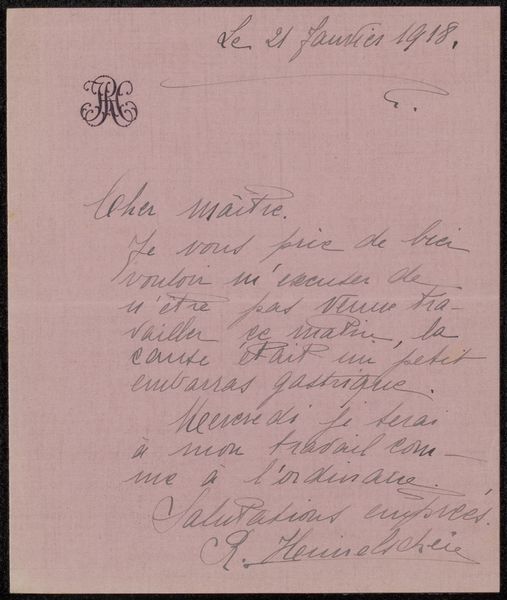 Le 21 Janvier 1918.
Cher maître.
Je vous prie de bien
vouloir m'excuser de
n'être pas venue tra-
vailler ce matin, la
cause était un petit
embarras gastrique.
Mercredi je serai
à mon travail com-
me à l'ordinaire.
Salutations
R.